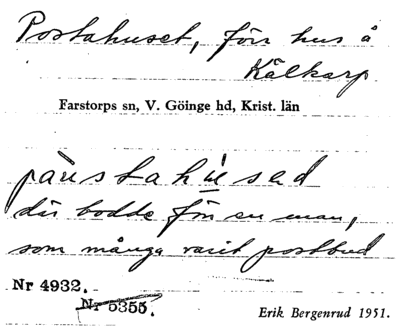 Postahuset, förr hus å
Kälkarp
Farstorps sn, V. Göinge hd, Krist. län
där bodde förr en man,
som många varit postbud
Nr 4932.
Nr 5355.
Erik Bergenrud 1951.